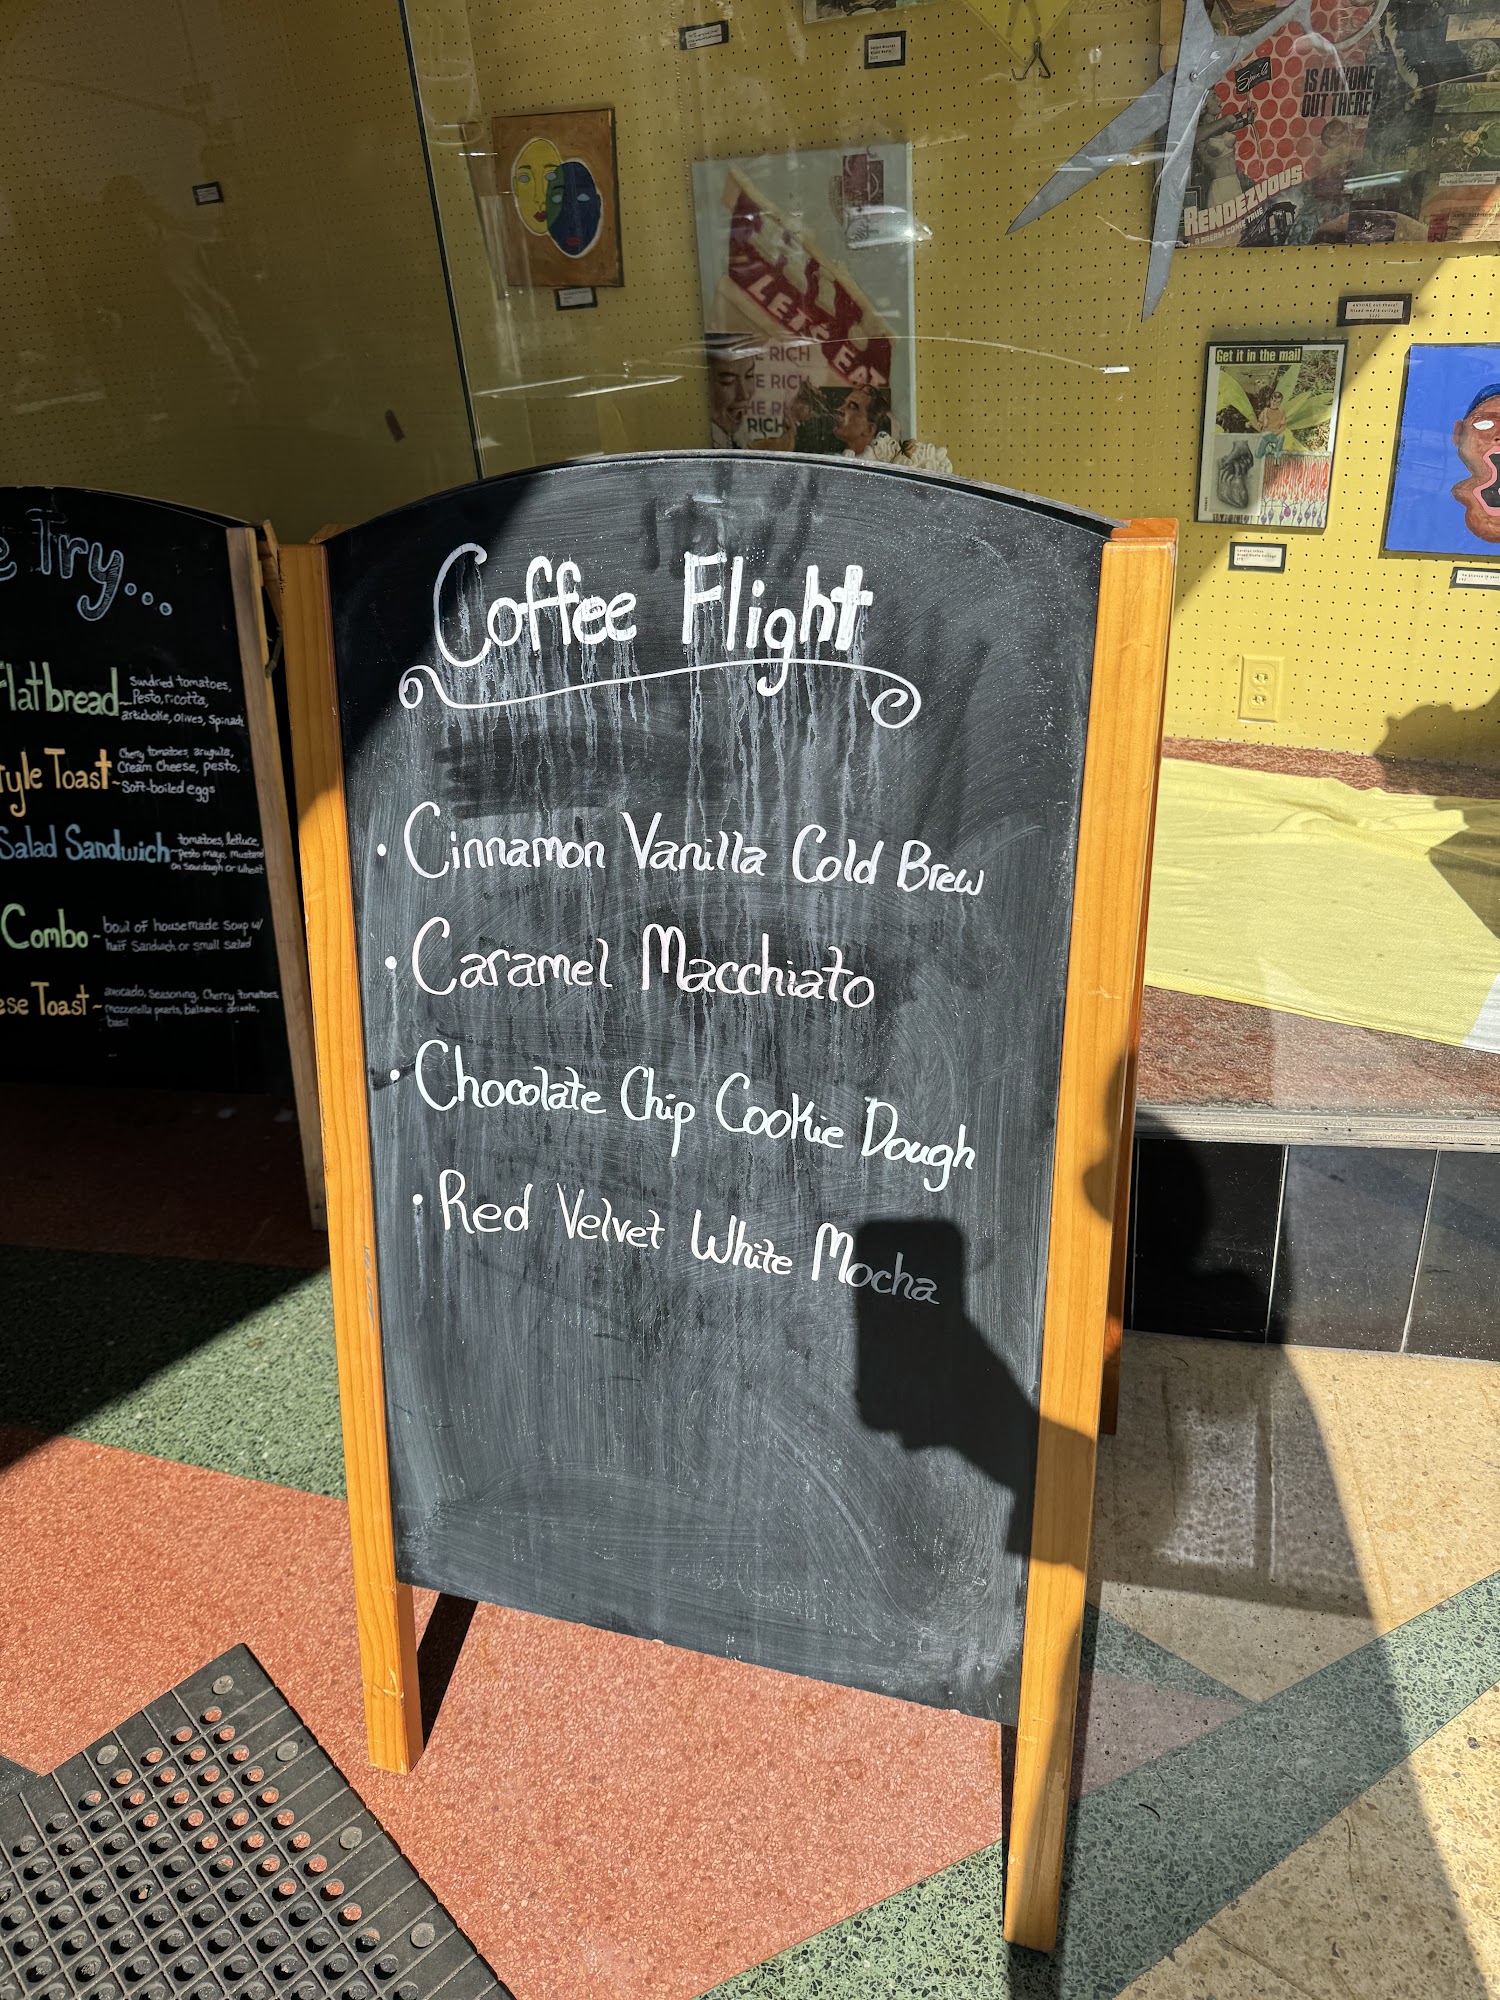 Coffee Flight
• Cinnamon Vanilla Cold Brew
• Caramel Macchiato
• Chocolate Chip Cookie Dough
• Red Velvet White Mocha
Try...
Flatbread~ Sundried tomatoes,
Pesto, ricotta,
artichoke, olives, Spinach
Style Toast~ Cherry tomatoes, arugula,
Cream Cheese, pesto,
Soft-boiled eggs
Salad Sandwich~ tomatoes, lettuce,
Pesto mayo, Mustard
on Sourdough or Wheat
Combo~ bowl of housemade Soup w/
half Sandwich or small Salad
ese Toast~ avocado, Seasoning, Cherry tomatoes,
mozzerella pearls, balsamic drizzle,
basil
LET'S EAT
E RICH
E RICH
HE RI
RICH
IS ANYONE
OUT THERE?
RENDEZVOUS
A DREAM COME TRUE
Get it in the mail